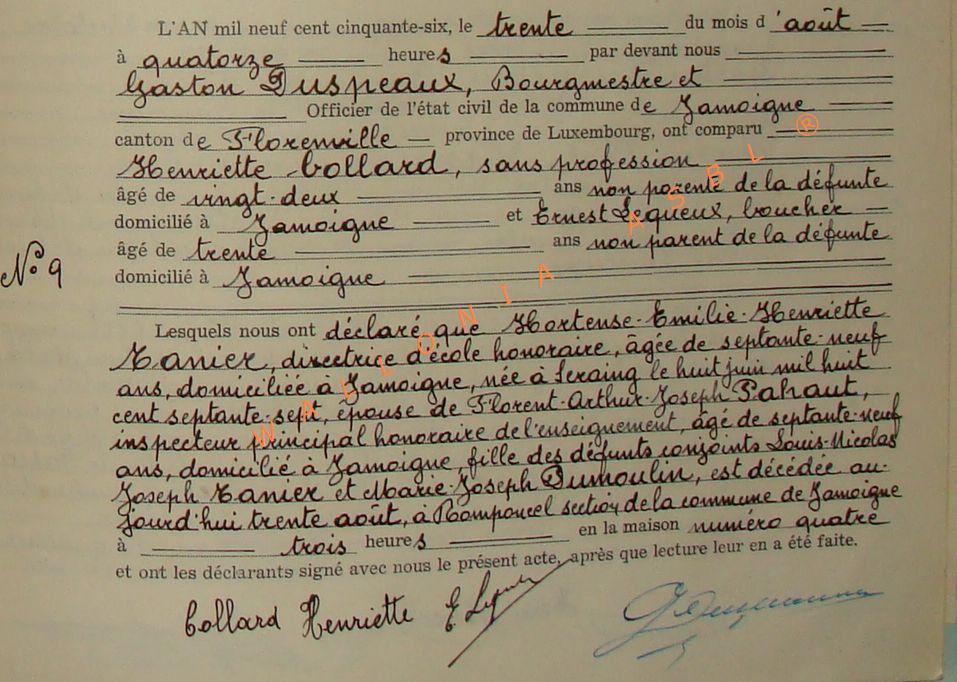 L'AN mil neuf cent cinquante-six, le trente du mois d'août
à quatorze heures par devant nous
Gaston Duspeaux, Bourgmestre et
Officier de l'état civil de la commune de Jamoigne
canton de Florenville province de Luxembourg, ont comparu
Henriette Collard, sans profession
âgé de vingt-deux ans non parente de la défunte
domicilié à Jamoigne et Ernest Lequeux, boucher
âgé de trente ans non parent de la défunte
N° 9
domicilié à Jamoigne
Lesquels nous ont déclaré que Hortense-Emilie-Henriette
Lanier, directrice d'école honoraire, âgée de septante-neuf
ans, domiciliée à Jamoigne, née à Seraing le huit juin mil huit
cent septante-sept, épouse de Florent-Arthur-Joseph Pahaut,
inspecteur principal honoraire de l'enseignement, âgé de septante-neuf
ans, domicilié à Jamoigne, fille des défunts conjoints Louis-Nicolas
Joseph Lanier et Marie-Joseph Dumoulin, est décédée au-
jourd'hui trente août, à Romponcel section de la commune de Jamoigne
à trois heures en la maison numéro quatre
et ont les déclarants signé avec nous le présent acte, après que lecture leur en a été faite.
Collard Henriette E. Lequeux
WALLONIA ASBL ®